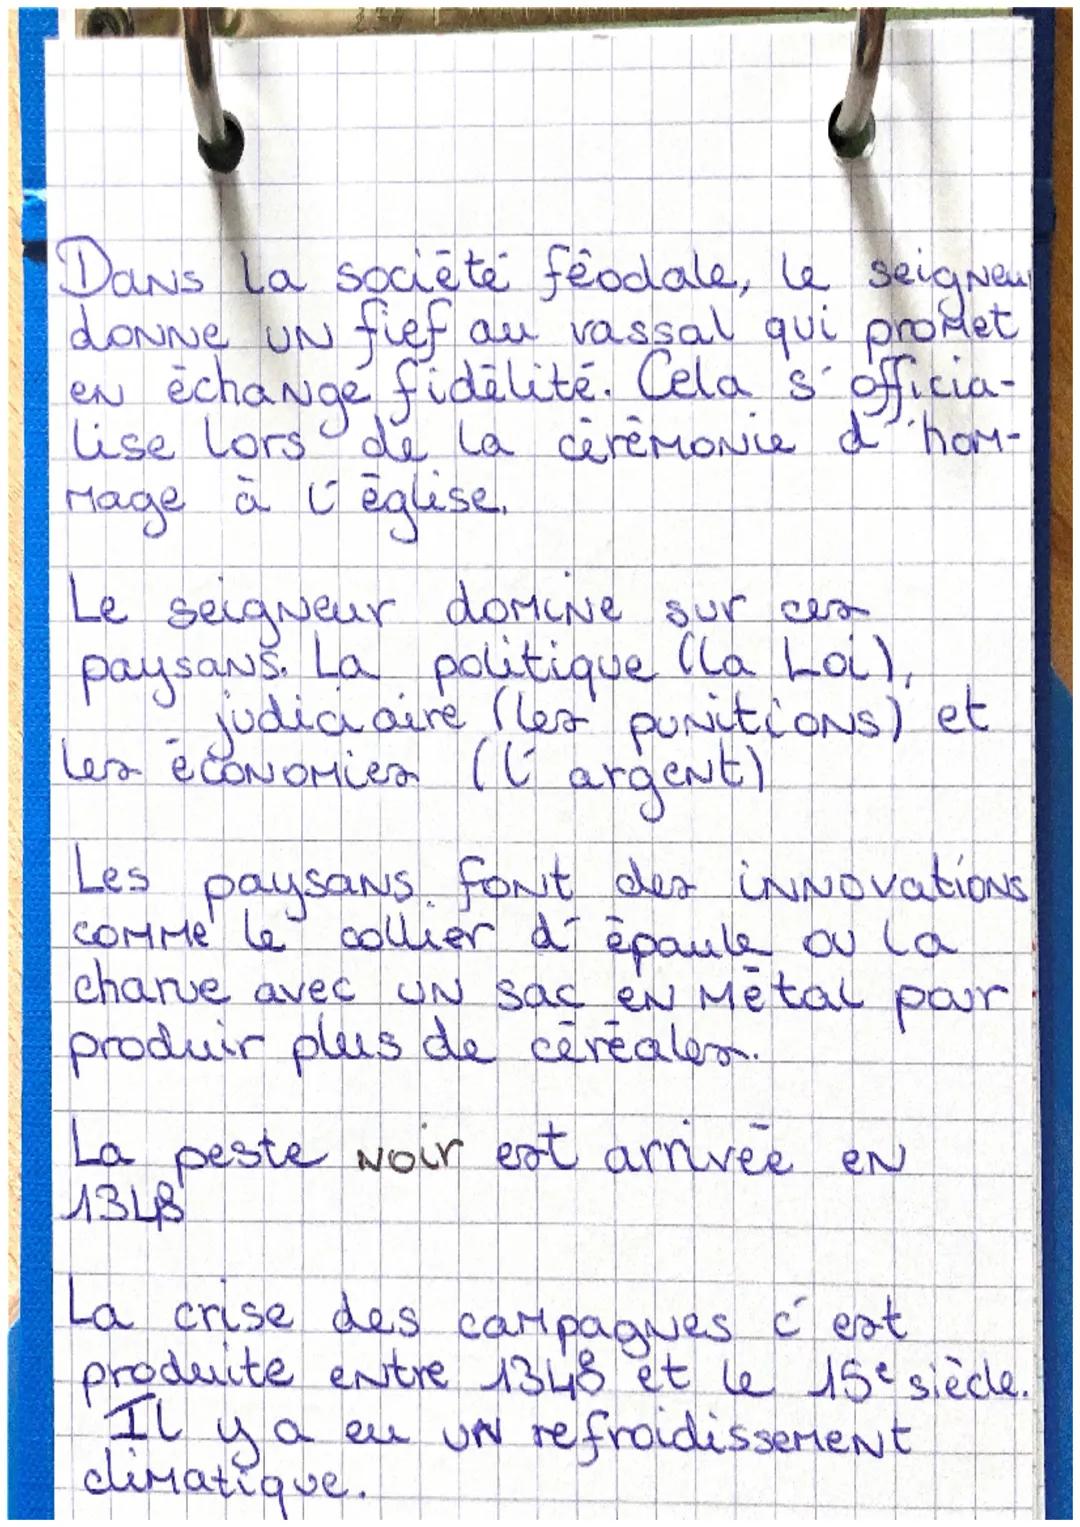 Dans la société féodale, le seigneu
donne un fief au vassal qui promet
en échange fidélité. Cela s'officia-
lise lors de la cérémonie d'hom-
mage à l'église.
Le seigneur domine sur ces
paysans. La politique (la Loi),
judiciaire (les punitions) et
les économies (l'argent)
Les paysans font des innovations
comme le collier d'épaule ou la
charue avec un sac en métal pour
produir plus de céréales.
La peste noir est arrivée en
1348
La crise des campagnes c'est
produite entre 1348 et le 15e siècle.
Il y a eu un refroidissement
climatique.